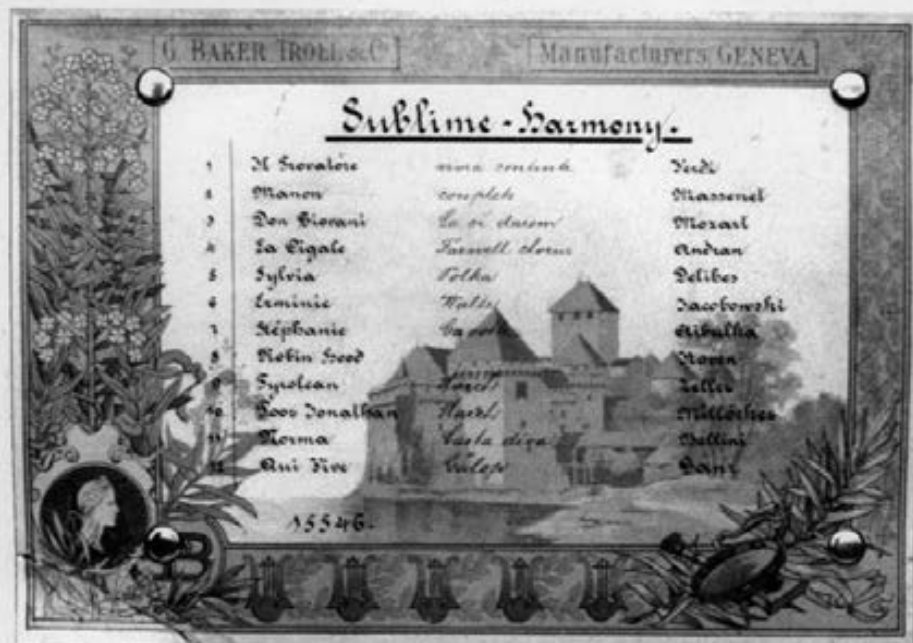 G. BAKER TROLL & Co Manufacturers GENEVA
Sublime-Harmony.
1 Il Trovatore Verdi
2 Manon couplets Massenet
3 Don Giovani La ci darem Mozart
4 La Cigale Farwell chorus Audran
5 Sylvia Polka Delibes
6 Erminie Waltz Jacobowski
7 Stéphanie Gavotte Czibulka
8 Robin Hood
9 Tyrolean Zeller
10 Poor Jonathan Millöcker
11 Norma Casta diva Bellini
12
15546.